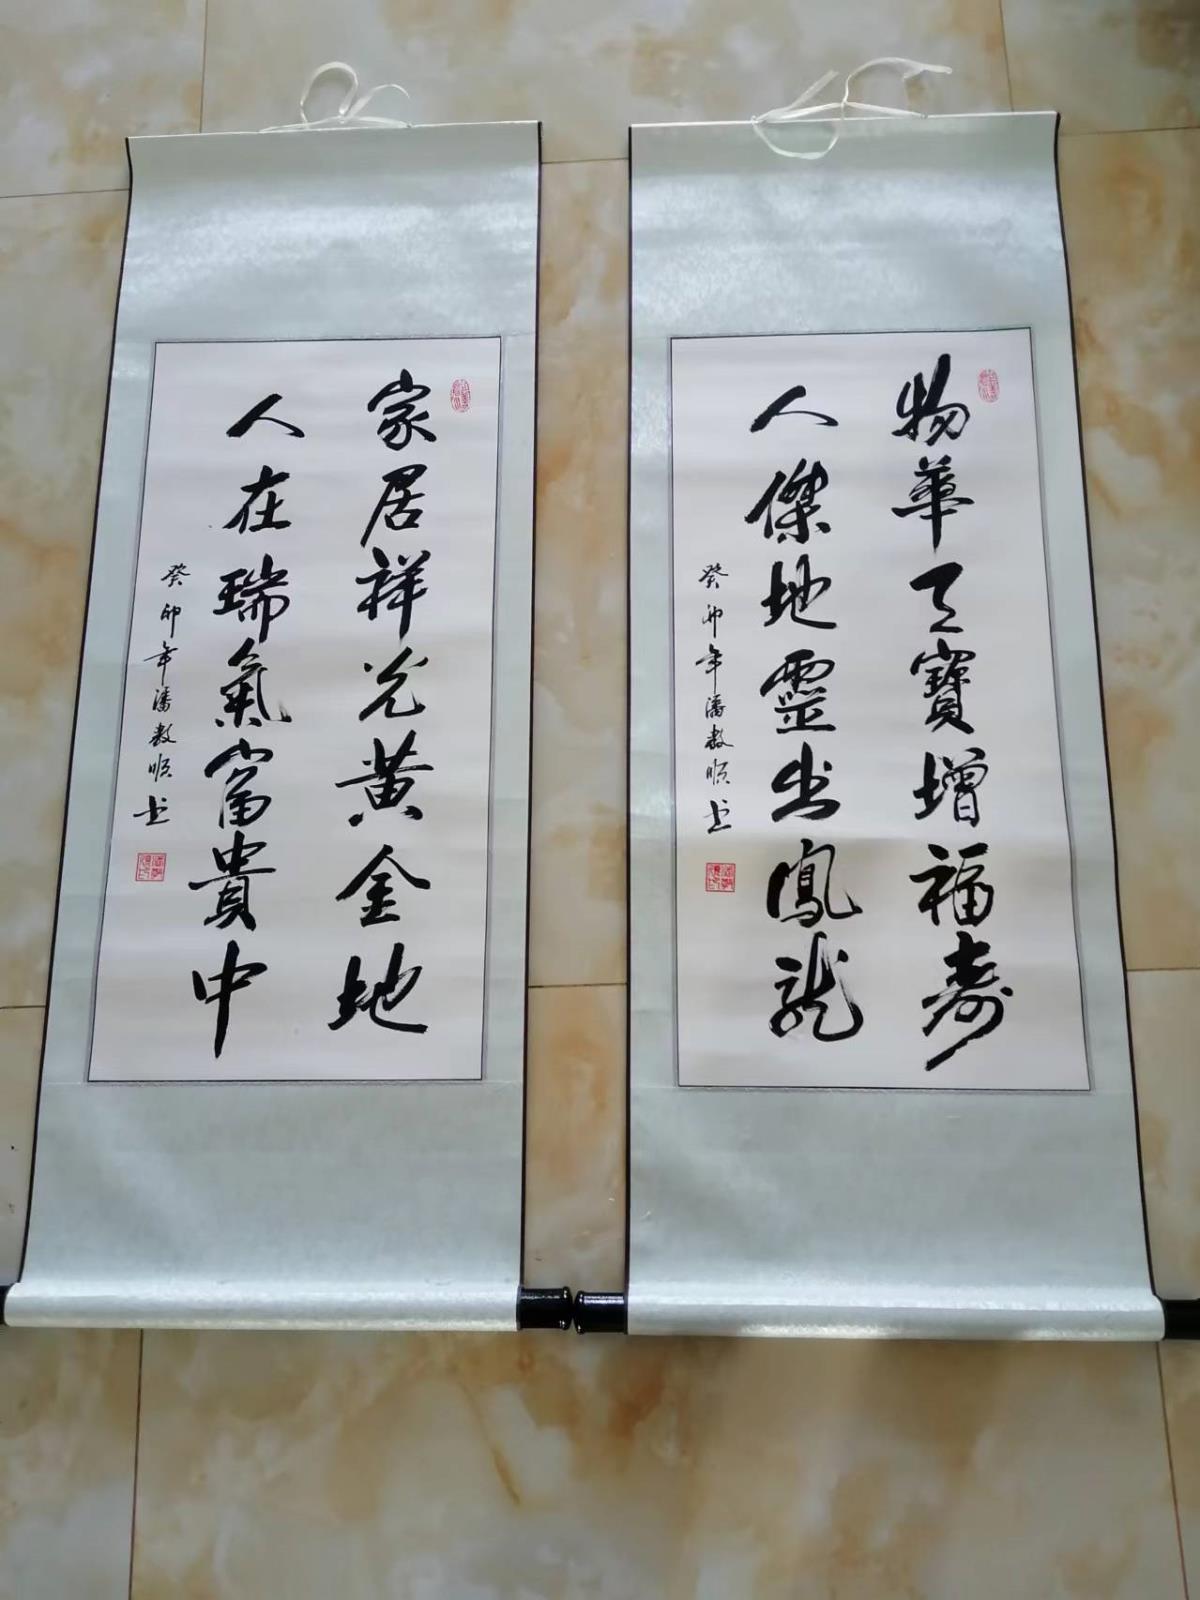 物華天寶增福壽
人傑地靈出鳳龍
癸卯年潘敖順书
家居祥光黃金地
人在瑞氣富貴中
癸卯年潘敖順书